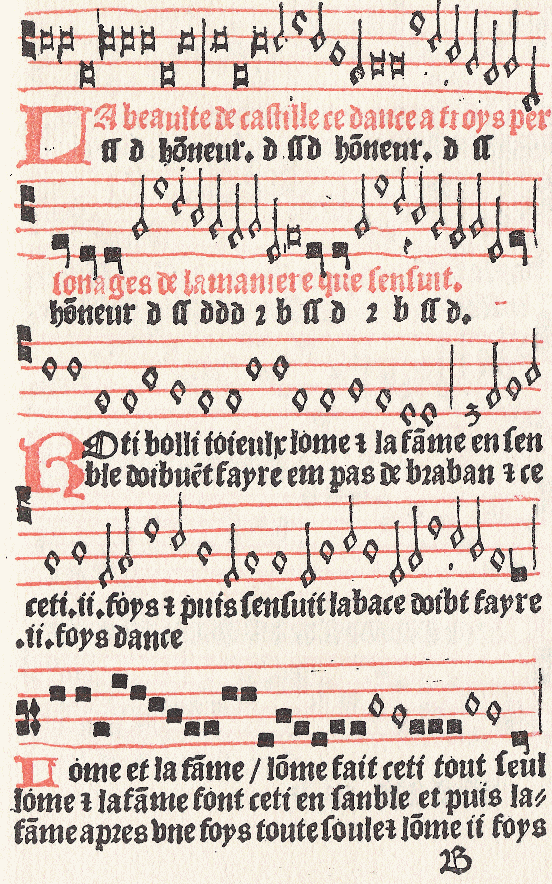 LA beaulte de castille ce dance a troys per
ſſ d hōneur. d ſſ d hōneur. d ſſ
sonages de la maniere que sensuit.
hōneur d ſſ ddd 2 b ſſ d 2 b ſſ d.
ROti bolli ioieulx lome ⁊ la fāme en sen
ble doibuēt fayre em pas de braban ⁊ ce
ceti.ii.foys ⁊ puis sensuit la bace doibt fayre
.ii.foys dance
Lome et la fāme / lōme fait ceti tout seul
lome ⁊ la fāme font ceti en sanble et puis la⸗
fāme apres vne foys toute soule ⁊ lōme ii foys
B